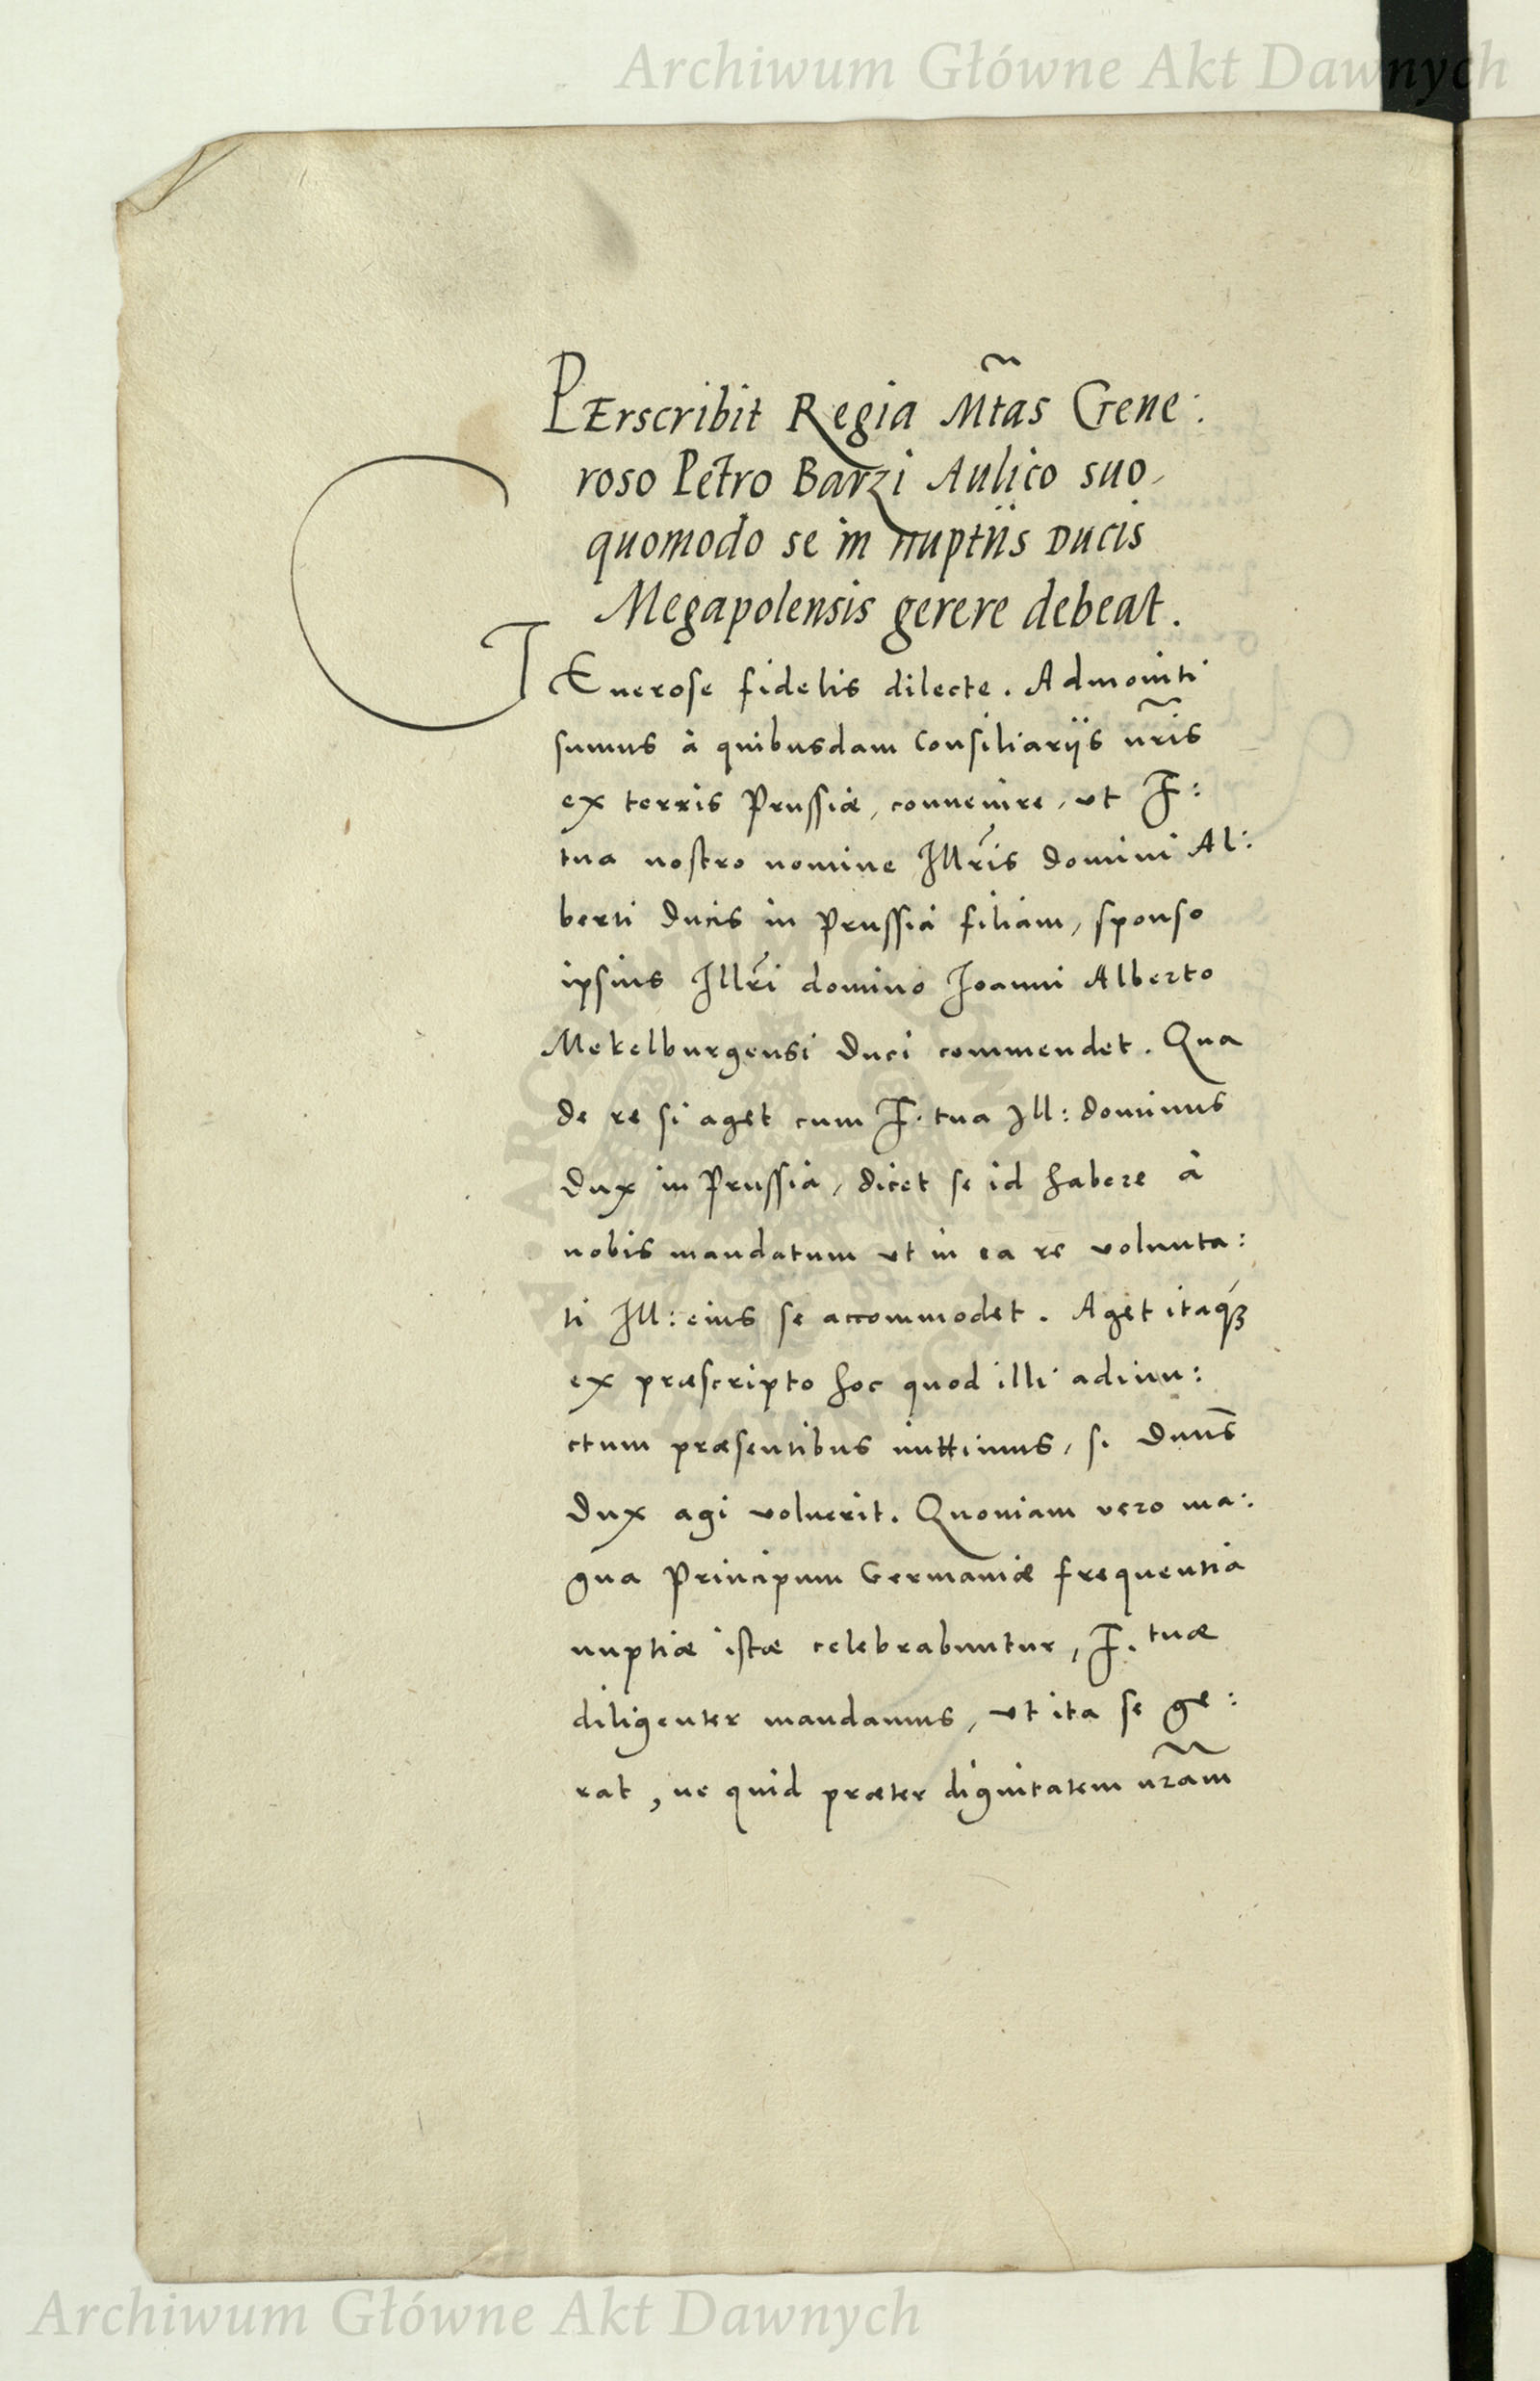 Archiwum Główne Akt Dawnych
PErscribit Regia Mtas Gene:
roso Petro Barzi Aulico suo,
quomodo se in nuptiis Ducis
Megapolensis gerere debeat.
GEnerose fidelis dilecte. Admoniti
sumus à quibusdam Consiliarijs nris
ex terris Prussiæ, convenire, ut F:
tua nostro nomine Illris domini Al:
berti Ducis in Prussia filiam, sponso
ipsius Illri domino Joanni Alberto
Mekelburgensi Duci commendet. Qua
de re si aget cum F. tua Ill: dominus
Dux in Prussia, dicet se id habere à
nobis mandatum ut in ea re volunta:
ti Ill: eius se accommodet. Aget itaq3
ex præscripto hoc quod illi adiun:
ctum præsentibus mittimus, si Dnus
Dux agi voluerit. Quoniam vero ma:
gna Principum Germaniæ frequentia
nuptiæ istæ celebrabuntur, F. tuæ
diligenter mandamus, ut ita se ge:
rat, ne quid præter dignitatem nram
Archiwum Główne Akt Dawnych